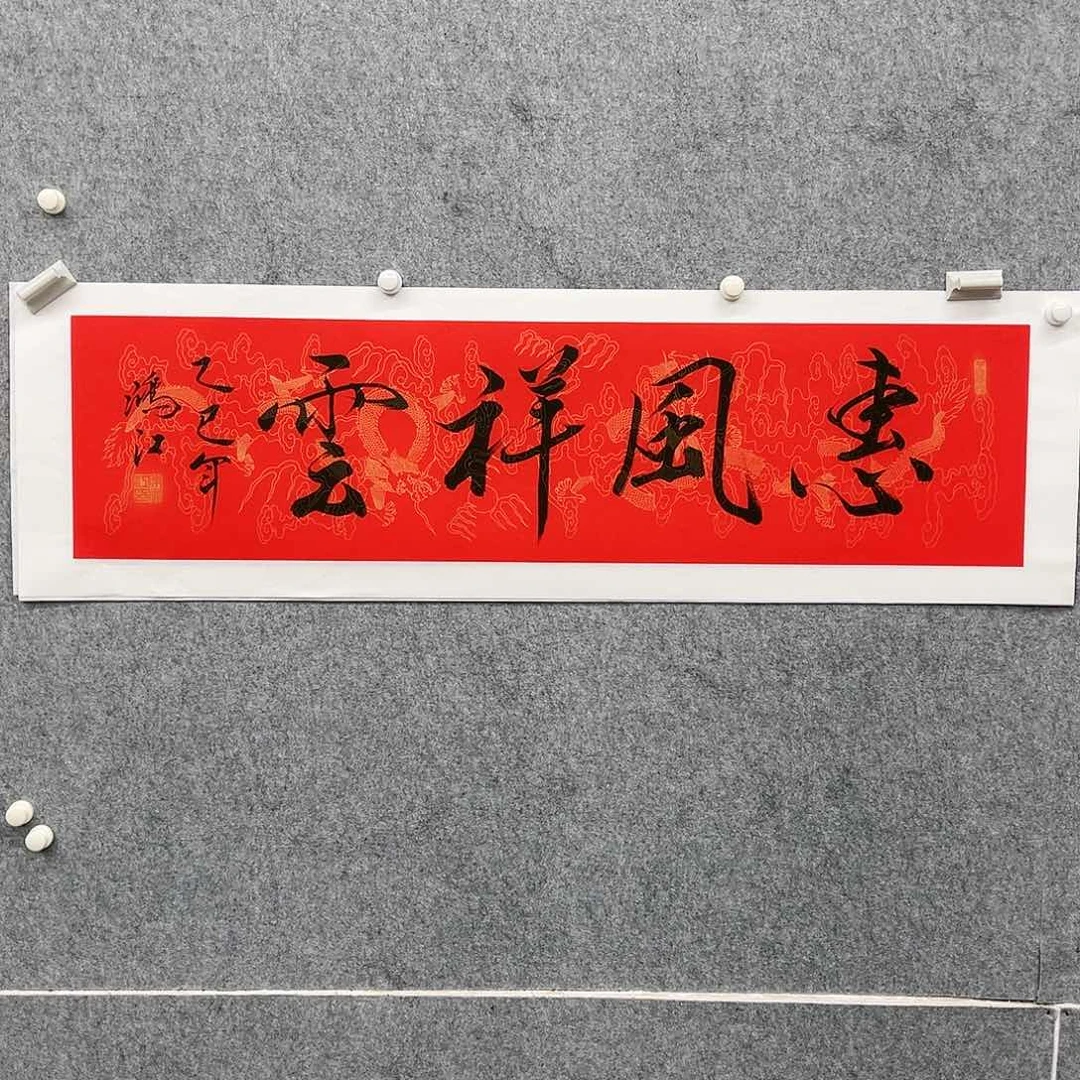 惠風祥雲
乙巳年
鴻江